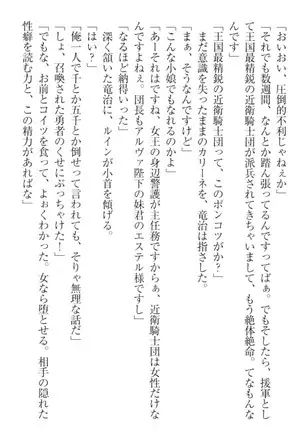 「おいおい、圧倒的不利じゃねぇか」
「それでも数週間、なんとか踏ん張ってるんですってばぁ。でもそしたら、援軍として
王国最精鋭の近衛騎士団が派兵されてきちゃいまして、もう絶体絶命。てなもんな
んです」
「王国最精鋭の近衛騎士団って、このポンコツがか?」
まだ意識を失ったままのカリーネを、竜治は指さした。
「まぁ、そうなんですけど」
「こんな小娘でもなれるのかよ」
「あーそれはですね、女王の身辺警護が主任務ですからぁ、近衛騎士団は女性だけな
んですよねぇ。団長もアルヴァ陛下の妹君のエステル様ですし」
「なるほど納得いった」
深く頷いた竜治に、ルインが小首を傾げる。
「はい?」
「俺一人で千とか五千とか倒せって言われても、そりゃ無理な話だ」
「しょ、召喚された勇者のくせにぶっちゃけた!」
「でもな、お前とコイツを食って、よぉくわかった。女なら堕とせる。相手の隠れた
性癖を読む力と、この精力があればな」